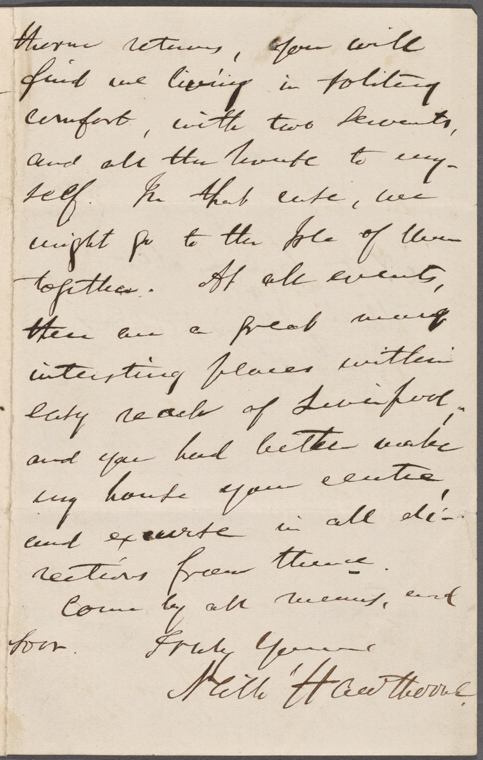 thorne returns, you will
find me living in solitary
comfort, with two servants,
and all the house to my-
self. In that case, we
might go to the Isle of Man
together. At all events,
there are a great many
interesting places within
easy reach of Liverpool,
and you had better make
my house your centre,
and excurse in all di-
rections from thence.
Come by all means, and
soon. Truly Yours
Nath Hawthorne.